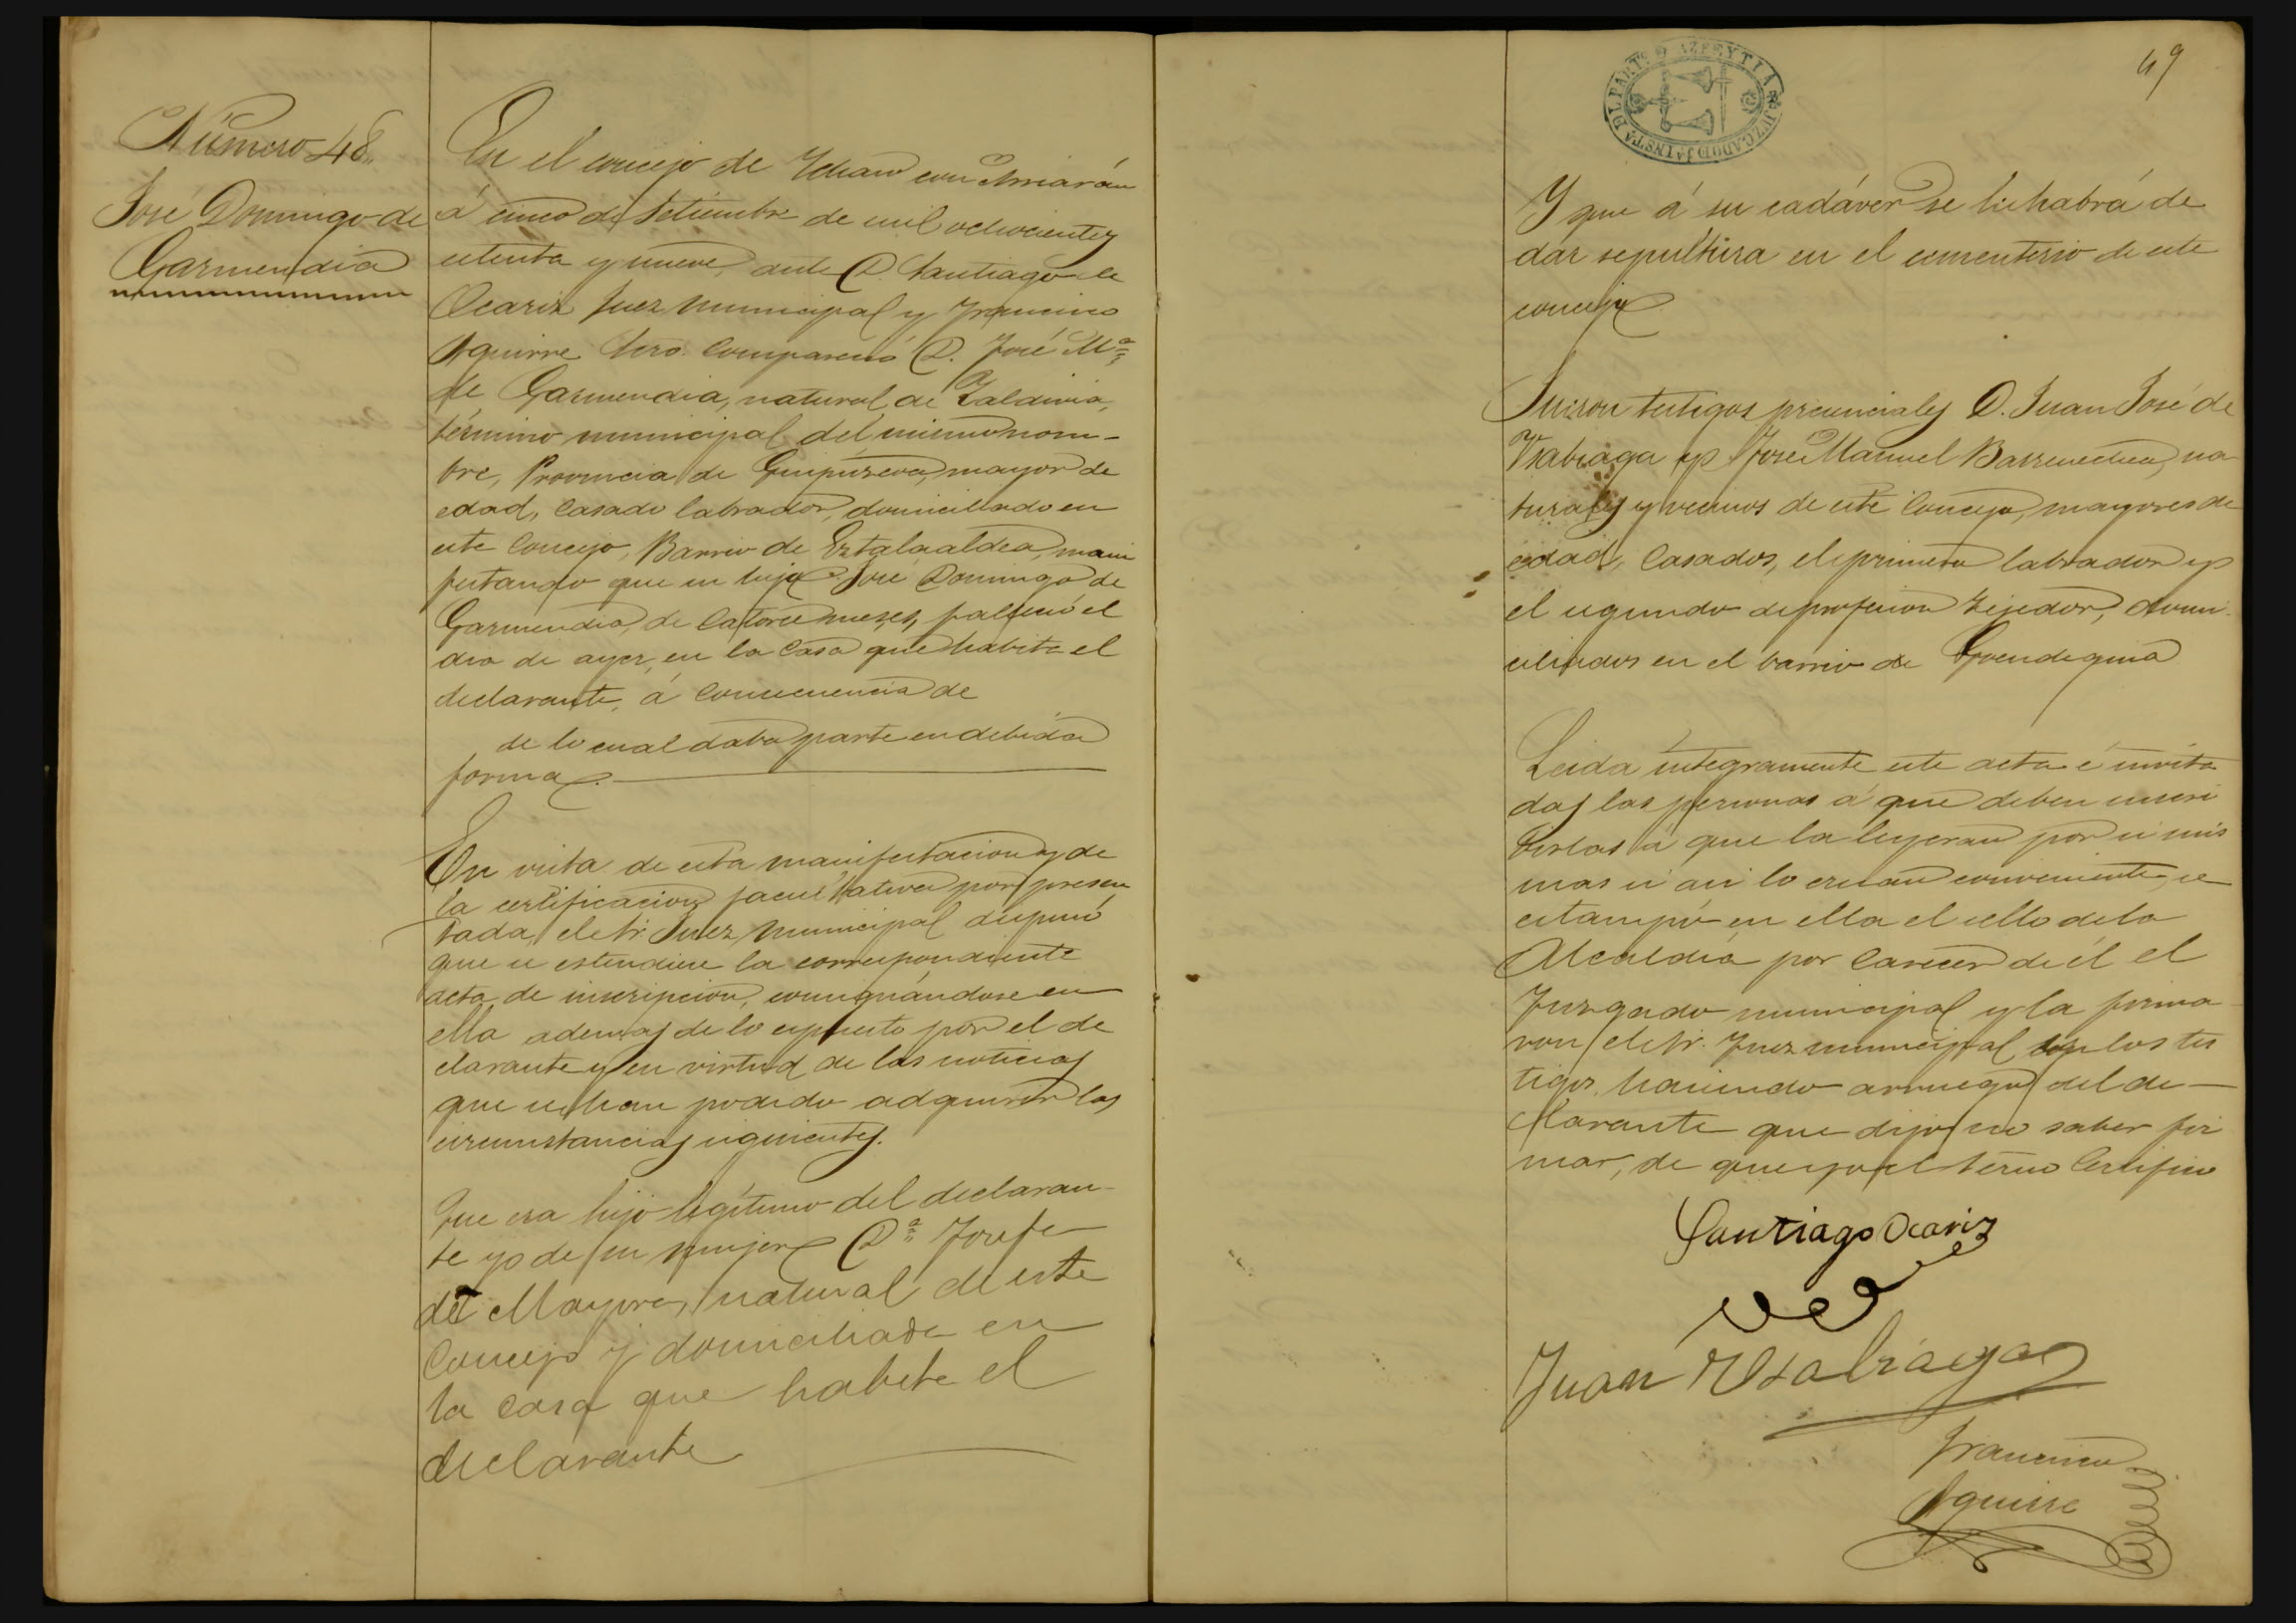 Número 48.
José Domingo de
Garmendia
En el concejo de Ychaso con Arriarán
á cinco de Setiembre de mil ochocientos
setenta y nueve, ante D. Santiago de
Ocariz Juez municipal y Francisco
Aguirre Srio. Compareció D. José Mª
de Garmendia, natural de Zaldivia,
término municipal del mismo nom-
bre, Provincia de Guipúzcoa, mayor de
edad, Casado labrador, domiciliado en
este Concejo, Barrio de, mani
festando que su hijo José Domingo de
Garmendia, de Catorce meses, falleció el
dia de ayer, en la Casa que habita el
declarante, á Consecuencia de
de lo cual daba parte en debida
forma.
En vista de esta manifestacion y de
la certificacion facultativa por presen
tada, el Sr. Juez municipal dispuso
que se estendiese la correspondiente
acta de inscripcion, consignándose en
ella ademas de lo espuesto por el de
clarante y en virtud de las noticias
que se han podido adquirir las
circunstancias siguientes.
Que era hijo legítimo del declaran-
te y de su mujer Dª Josefa
de Mayora, natural de este
Concejo y domiciliada en
la casa que habita el
declarante
49
JUZGADO D 1ª INSTª DL PARTº D AZPEYTIA
Y que á su cadáver se le habrá de
dar sepultura en el cementerio de este
concejo
Fueron testigos presenciales D. Juan José de
Usabiaga y José Manuel Barrenechea, na
turales y vecinos de este Concejo, mayores de
edad, Casados, el primero labrador y
el segundo de profesion tejedor, domi
ciliados en el barrio de
Leida íntegramente este acta é invita
das las personas á que deben suscri
birlas á que la leyeran por si mis
mas si asi lo creian conveniente, se
estampó en ella el sello de la
Alcaldía por Carecer de él el
Juzgado municipal y la firma
ron el Sr. Juez municipal con los tes
tigos haciendo arruego del de-
clarante que dijo no saber fir
mar, de que yo el Srio Certifico
Santiago Ocariz
Juan Usabiaga
Francisco
Aguirre